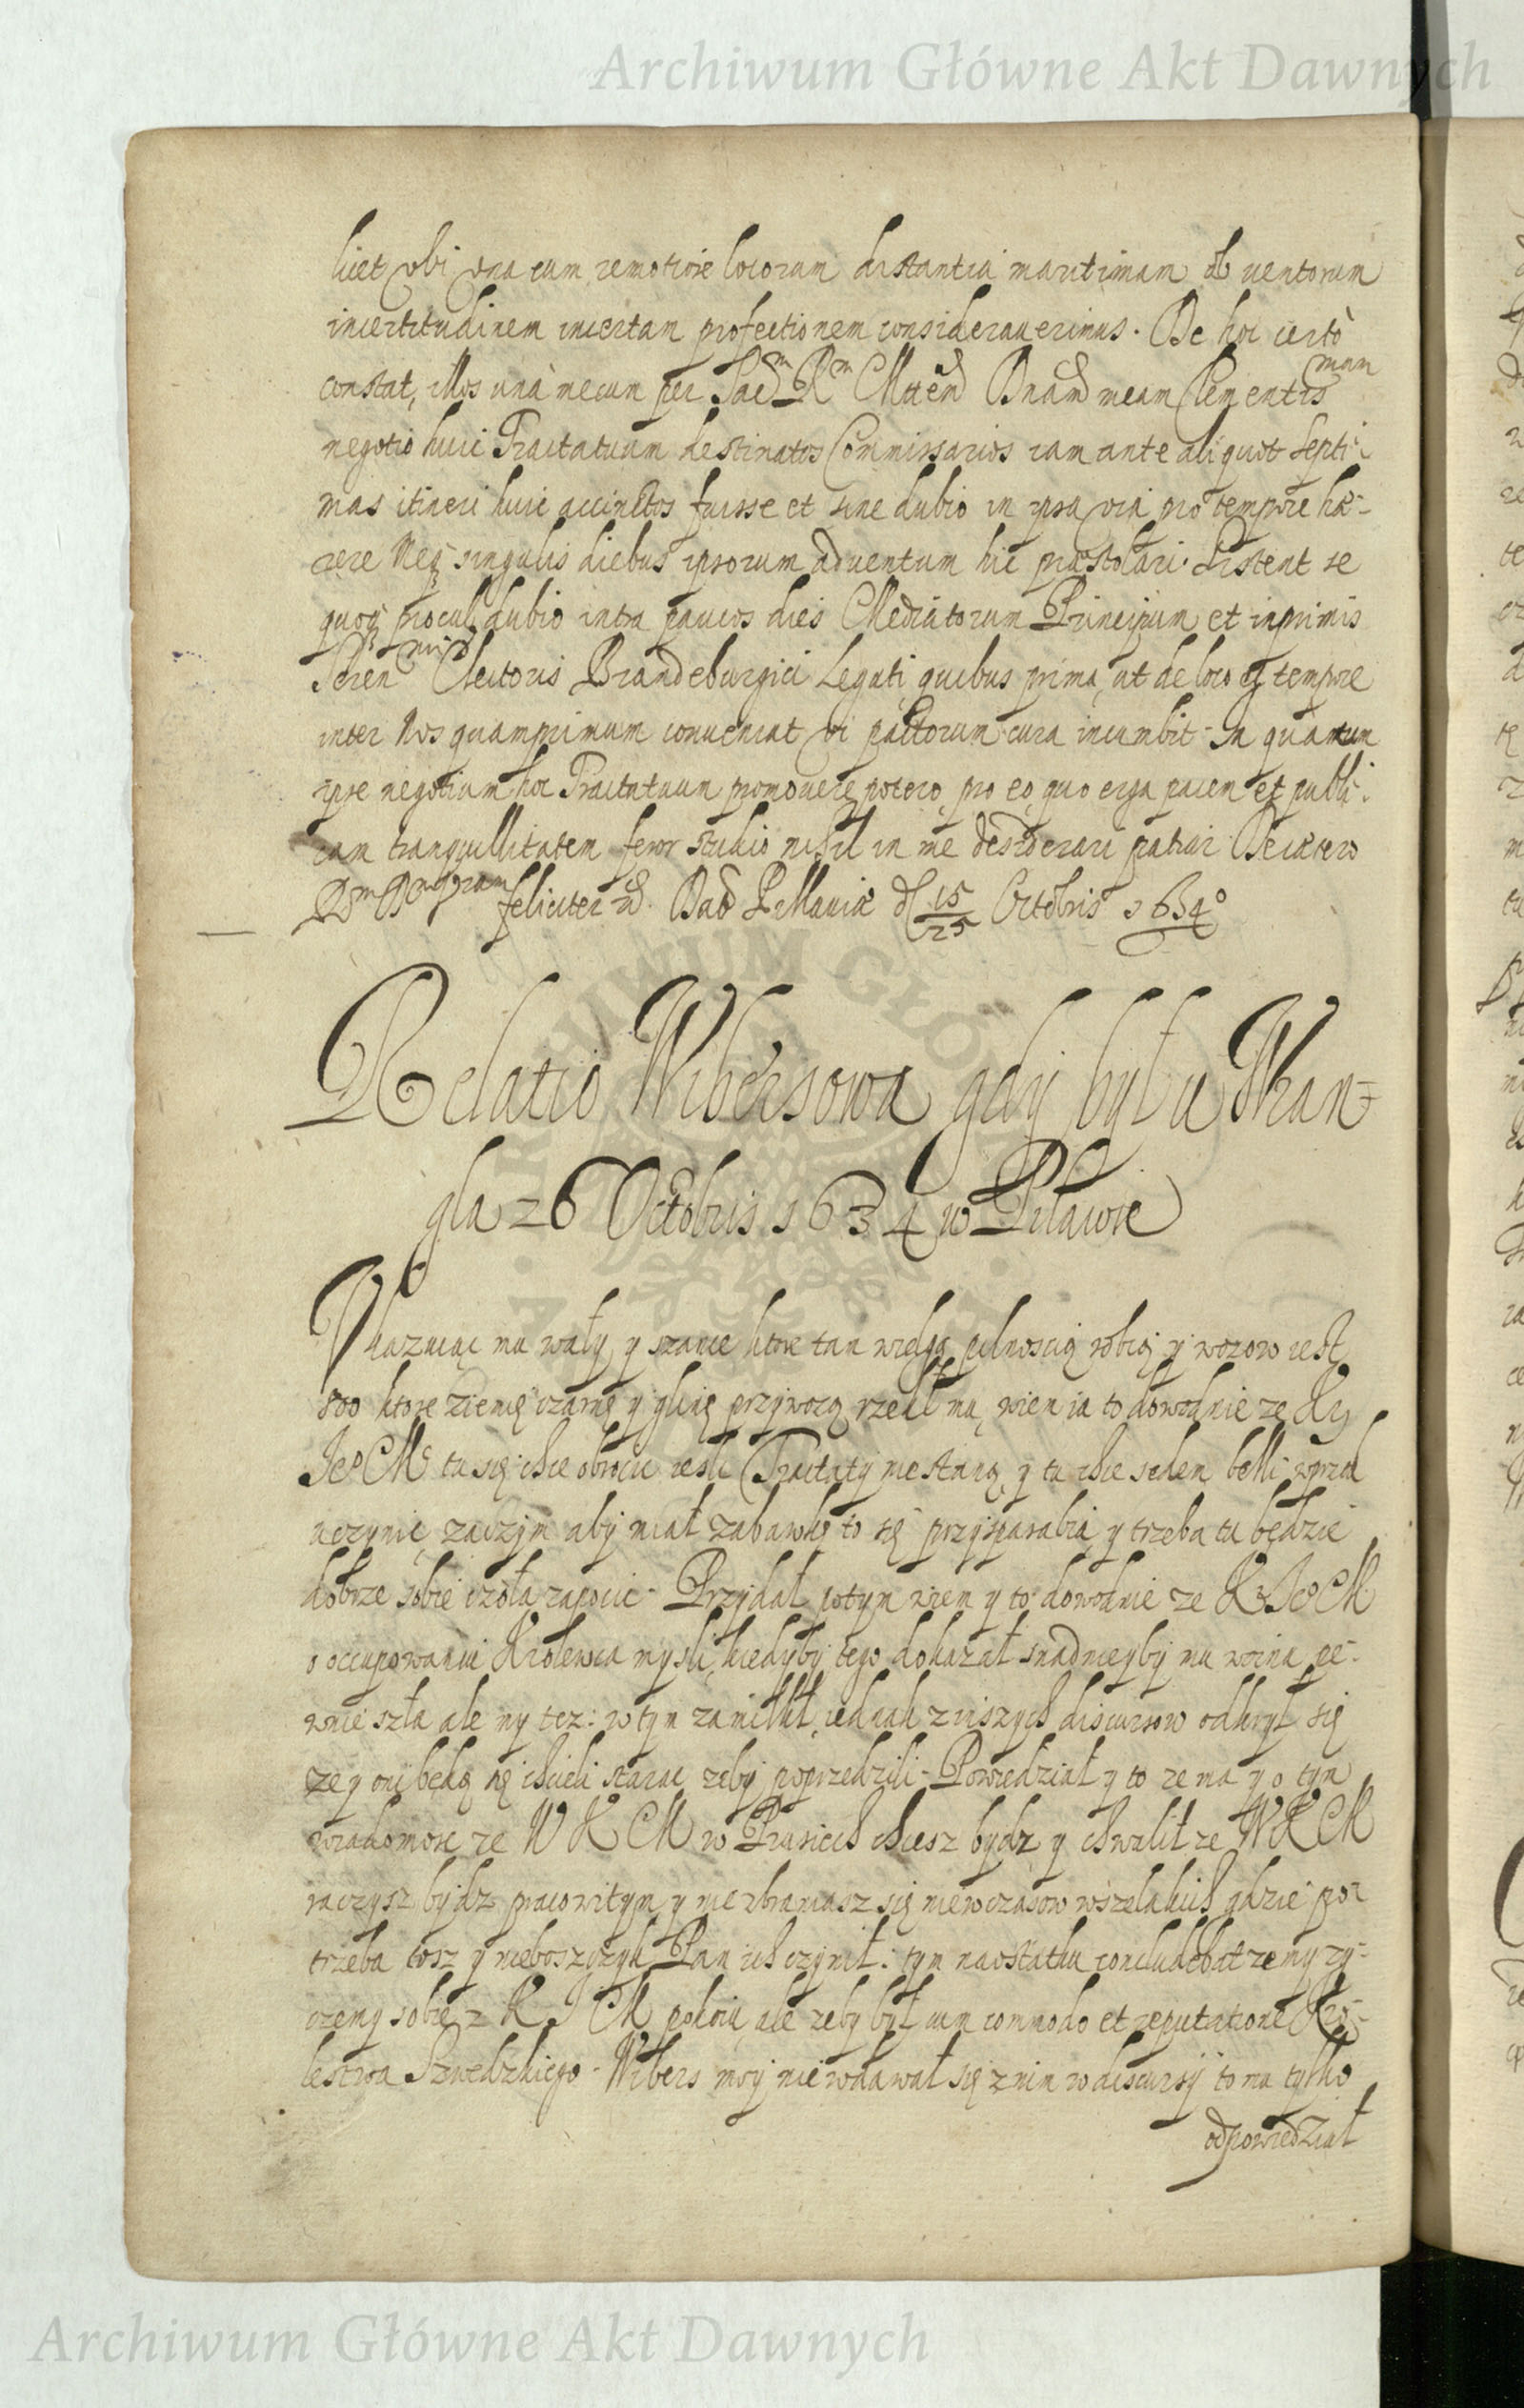 Archiwum Główne Akt Dawnych
licet ubi una cum remotiore locorum distantia maritimam ob ventorum
incertitudinem incertam profectionem consideraverimus. De hoc certò
constat, illos unà mecum per Sac^m R^m Mttem Dnam meam Clementis^mam
negotio huic Tractatuum destinatos Commissarios iam ante aliquot septi-
mas itineri huic accinctos fuisse et sine dubio in ipsa via pro tempore hæ-
rere Neq singulis diebus ipsorum adventum hic præstolari. Sistent se
quoq procul dubio intra paucos dies Mediatorum Principum et inprimis
Seren^mi Electoris Brandeburgici Legati quibus prima, ut de loco et tempore
inter Nos quamprimum conveniat vi pactorum cura incumbit. In quantum
ipse negotium hoc Tractatuum promovere potero, pro eo, quo erga pacem et publi-
cam tranquillitatem feror studio nihil in me desiderari patiar. De cætero
feliciter Dab Pillaviæ d 15/25 Octobris 1634^o
Relatio Wibersowa gdy był u Kan-
gla 26 Octobris 1634 w Pilawie
Ukazuiąc mu wały y szance ktore tam wielgą pilnoscią robią y wozow iest
800 ktore ziemię czarnę y glinę przywozą rzekł mu, wiem ia to dowodnie ze Kr
Je^o M^c tu się chce obrocic iesli Tractaty nie staną, y tu chce sedem belli wprzod
uczynic, zaczym aby miał zabawkę to się przysparabia y trzeba tu będzie
dobrze sobie czoła zapocic. Przydał potym wiem y to dowodnie ze K Je^o M
o occupowaniu Krolewca mysli, kiedyby tego dokazał snadnieyby mu woina pe-
wnie szła ale my tez: w tym zamilkł, iednak z inszych discursow odkrył się
ze y oni będą się chcieli starac zeby poprzedzili. Powiedział y to ze ma y o tym
wiadomosc ze W K M w Prusiech chcesz bydz y chwalił ze W K M
raczysz bydz pracowitym y nie zbraniasz się niewczasow wszelakich gdzie po-
trzeba tosz y nieboszczyk Pan ich czynił: tym naostatku concludebat ze my zy-
czemy sobie z K J M pokoiu ale zeby był cum commodo et reputatione Kro-
lestwa Szwedzkiego. Wibers moy nie wdawał się z nim w discursy to mu tylko
odpowiedział
Archiwum Główne Akt Dawnych